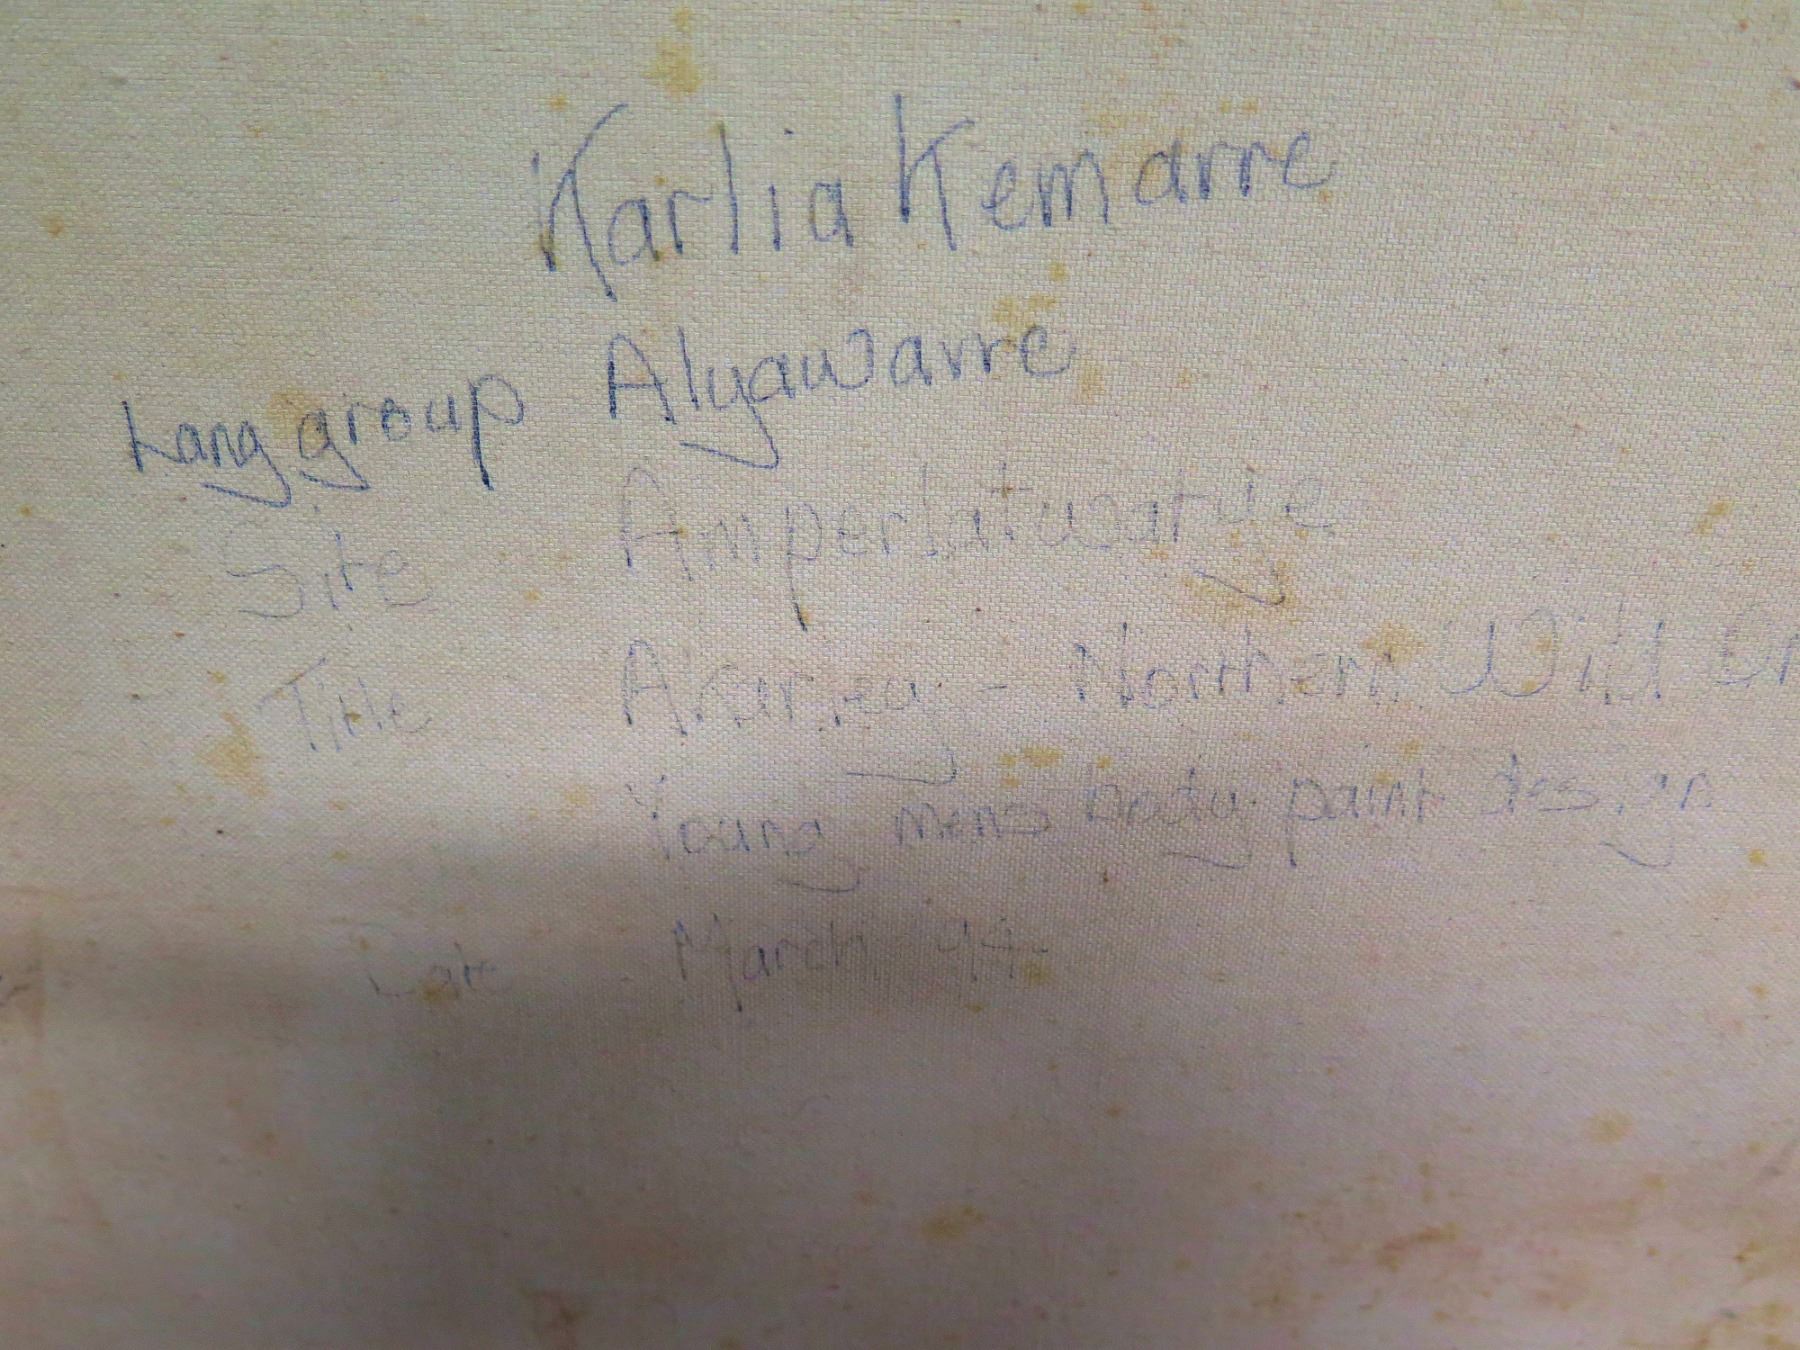 Karlia Kemarre
Lang group Alyawarre
Site Amperlatwatye
Title - Northern Wild
Young mens body paint design
Date March 94